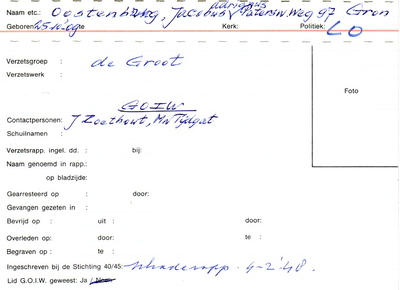 Naam etc.: Oostenbrug, Jacobus Adrianus, Paterswweg 97 Gron
Geboren: 25.10.09 te Kerk: Politiek: LO
Verzetsgroep : de Groot
Verzetswerk :
Foto
GOIW
Contactpersonen: J Zoethout, Mw Tijdgat
Schuilnaam :
Verzetsrapp. ingel. dd. : bij:
Naam genoemd in rapp.:
op bladzijde:
Gearresteerd op : door:
Gevangen gezeten in :
Bevrijd op : uit : door:
Overleden op: door: te :
Begraven op : te :
Ingeschreven bij de Stichting 40/45: 4-2-'48.
Lid G.O.I.W. geweest: Ja / Neen